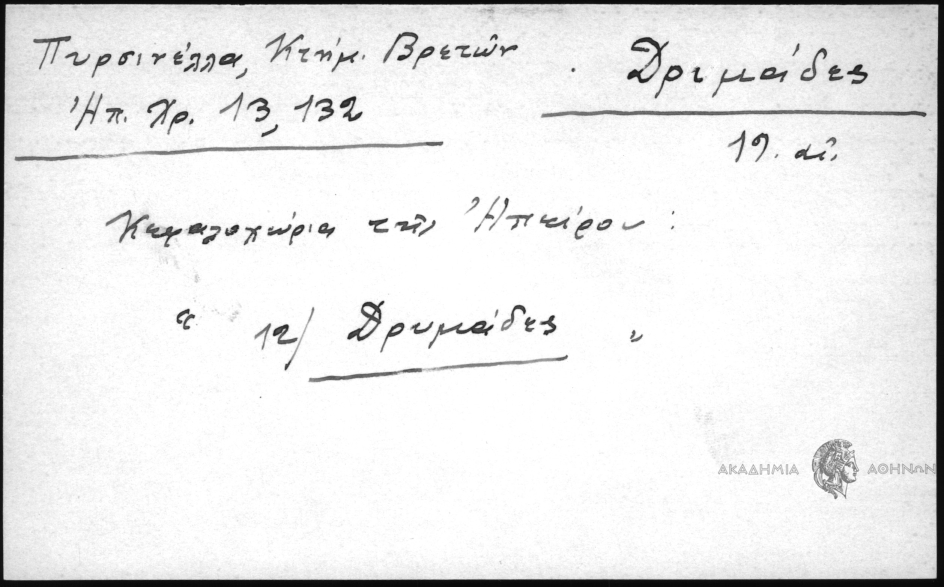 Πυρσινέλλα, Κτήμ. Βρετῶν
Ἠπ. Χρ. 13, 132
Δριμάδες
19. αἰ.
Κεφαλοχώρια τῆς Ἠπείρου :
“ 12/ Δρυμάδες „
ΑΚΑΔΗΜΙΑ ΑΘΗΝΩΝ